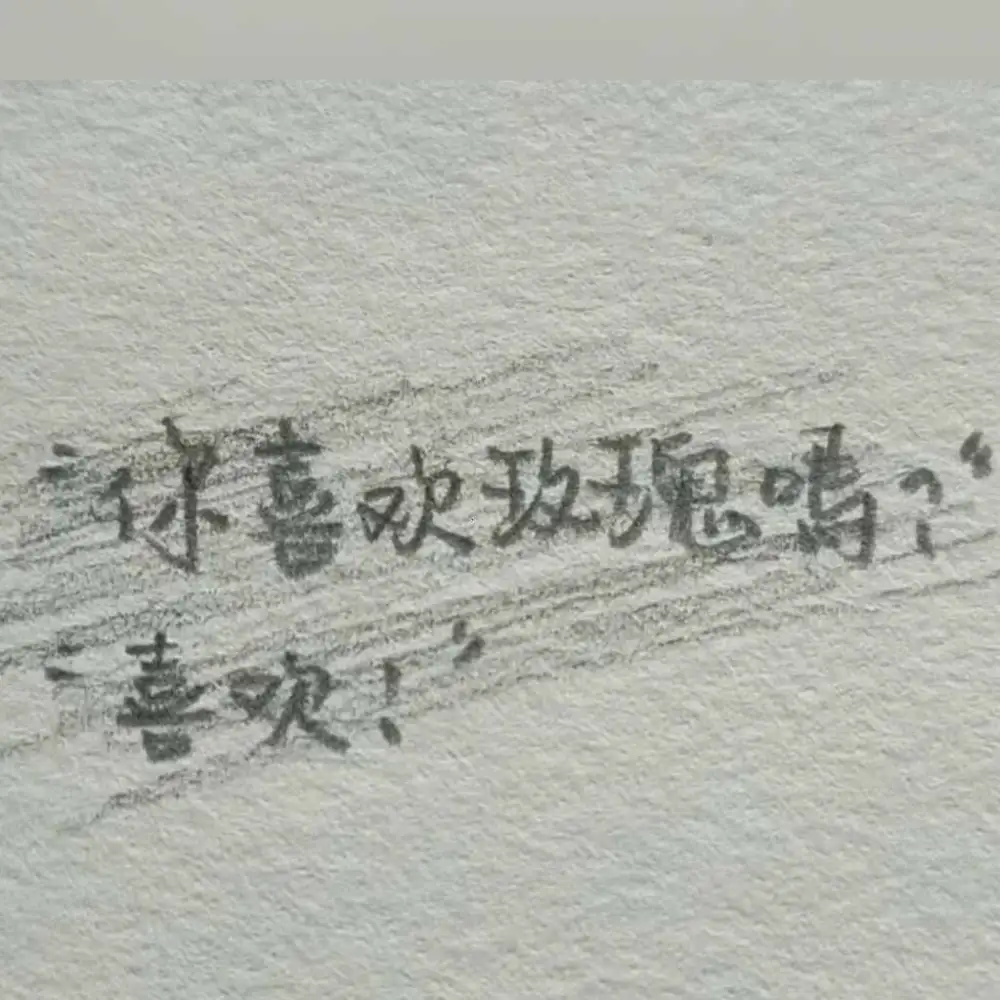 “你喜欢玫瑰嗎?“
“喜欢!”